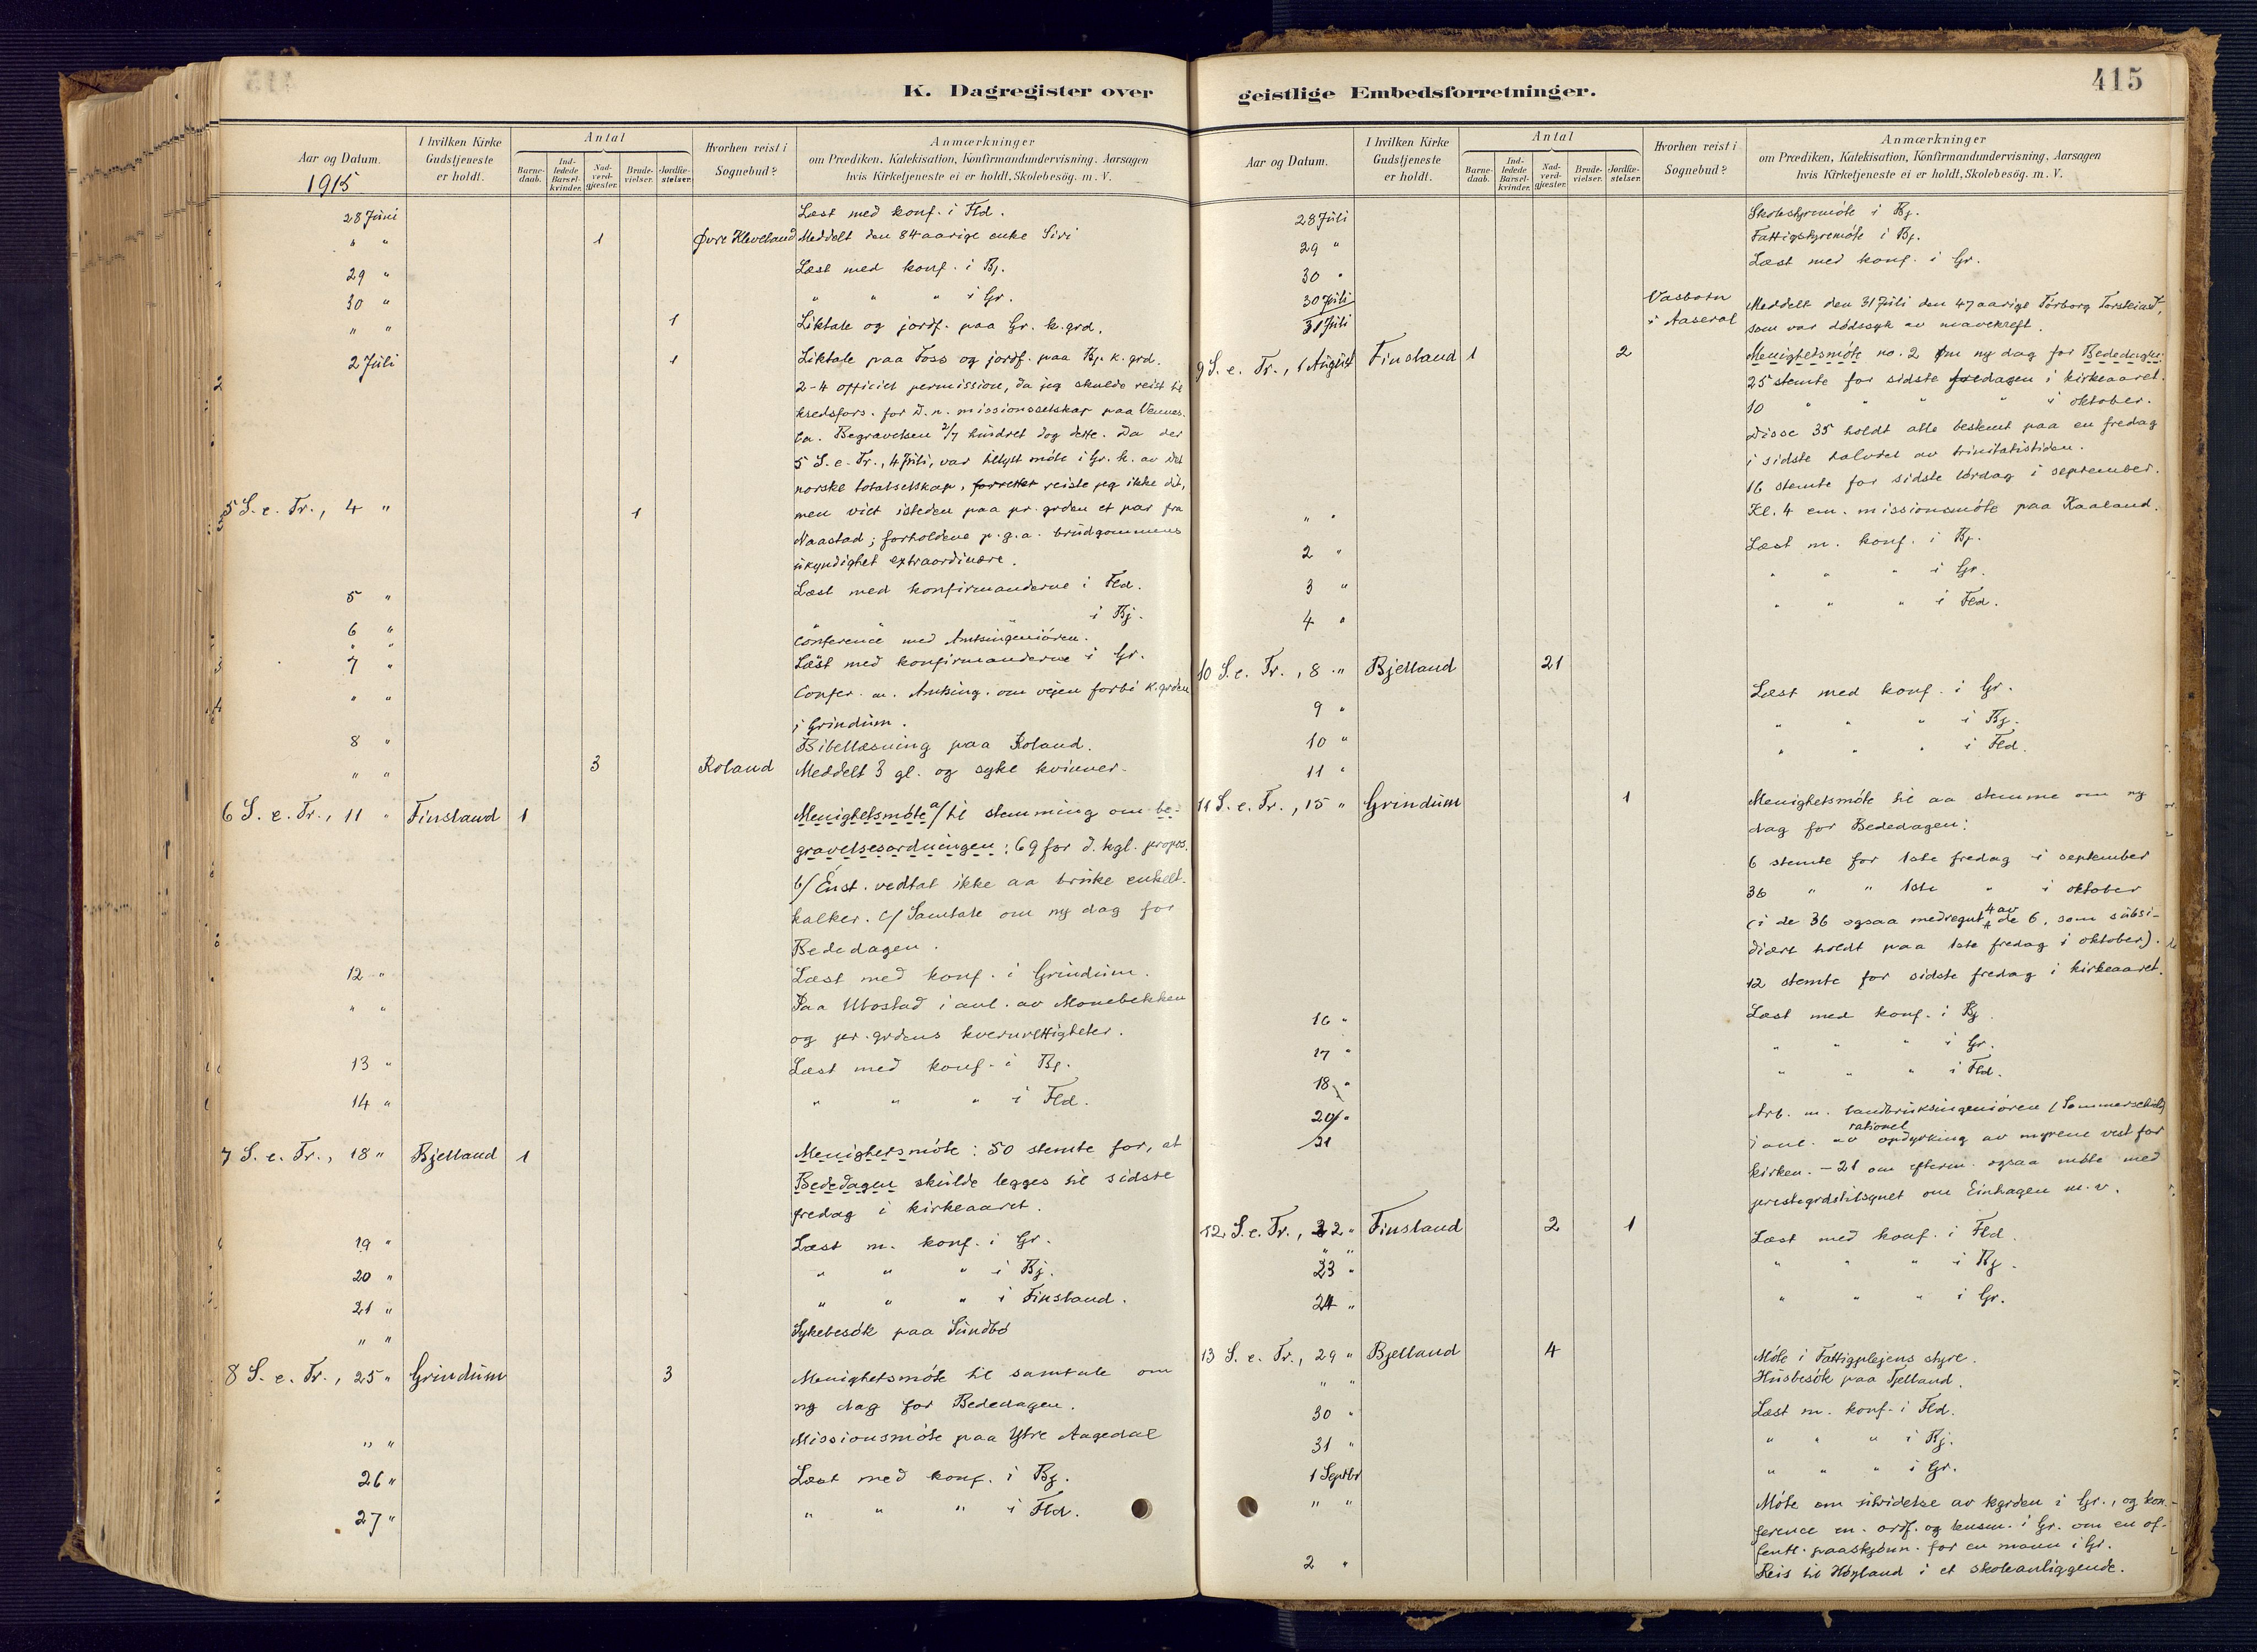 K. Dagregister over
Aar og Datum.
1915
I hvilken Kirke Gudstjeneste er holdt.
Antal
Barne-daab.
Ind-ledede Barsel-kvinder.
Nad-verd-gjæster.
Brude-vielser.
Jordfæ-stelser.
Hvorhen reist i Sognebud?
Anmærkninger
om Prædiken, Katekisation, Konfirmandundervisning, Aarsagen
hvis Kirketjeneste ei er holdt, Skolebesøg. m. V.
28 Juni Læst med konf. i Fld.
" " 1 Øvre Kleveland Meddelt den 84 aarige enke Siri
29 " Læst med konf. i Bj.
30 " " " " i Gr.
" " 1 Liktale og jordf. paa Gr. k.grd.
2 Juli 1 Liktale paa Foss og jordf. paa Bj. k. grd.
2-4 officiel permission, da jeg skulde reist til
kredsfors. for D. n. missionsselskap paa Vennes-
la. Begravelsen 2/7 hindret dog dette. Da der
5 S. e. Tr., 4 Juli, var tillyst møte i Gr. k. av Det
norske totalselskap, reiste jeg ikke dit,
5 S. e. Tr., 4 " 1 men viet isteden paa pr. grden et par fra
Naastad; forholdene p. g. a. brudgommens
ukyndighet extraordinære.
5 " Læst med konfirmanderne i Fld.
6 " " " i Bj.
" " Conference med Amtsingeniøren.
7 " Læst med konfirmanderne i Gr.
" " Confer. m. Amtsing. om vejen forbi k.grden
i Grindum.
8 " Bibellæsning paa Roland.
" " 3 Roland Meddelt 3 gl. og syke kvinner.
6 S. e. Tr., 11 " Finsland 1 Menighetsmøte a/ til stemming om be-
gravelsesordningen: 69 for d. kgl. propos.
b/ Enst. vedtat ikke aa bruke enkelt-
kalker. c/ Samtale om ny dag for
Bededagen.
12 " Læst med konf. i Grindum.
" " Paa Ubostad i anl. av Monebekken
og pr. grdens kvernrettigheter.
13 " Læst med konf. i Bj.
14 " " " " i Fld.
7 S. e. Tr., 18 " Bjelland 1 Menighetsmøte: 50 stemte for, at
Bededagen skulde legges til sidste
fredag i kirkeaaret.
19 " Læst m. konf. i Gr.
20 " " " " i Bj.
21 " " " " i Finsland.
" " Sykebesøk paa Sundbø
8 S. e. Tr., 25 " Grindum 3 Menighetsmøte til samtale om
ny dag for Bededagen.
" " Missionsmøte paa Ytre Aagedal
26 " Læst med konf. i Bj.
27 " " " " i Fld.
geistlige Embedsforretninger.
415
Aar og Datum.
I hvilken Kirke Gudstjeneste er holdt.
Antal
Barne-daab.
Ind-ledede Barsel-kvinder.
Nad-verd-gjæster.
Brude-vielser.
Jordfæ-stelser.
Hvorhen reist i Sognebud?
Anmærkninger
om Prædiken, Katekisation, Konfirmandundervisning, Aarsagen
hvis Kirketjeneste ei er holdt, Skolebesøg. m. V.
28 Juli Skolestyremøte i Bj.
29 " Fattigstyremøte i Bj.
30 " Læst med konf. i Gr.
30 Juli Vasbotn Meddelt den 31 Juli den 47 aarige Torborg
31 Juli i Aaseral som var dødssyk av mavekreft.
9 S. e. Tr., 1 August Finsland 1 2 Menighetsmøte no. 2 om ny dag for Bededagen:
25 stemte for sidste fredagen i kirkeaaret.
10 " " " " i oktober.
Disse 35 holdt alle bestemt paa en fredag
i sidste halvdel av trinitatistiden.
16 stemte for sidste lørdag i september.
" " Kl. 4 em. missionsmøte paa Kaaland.
2 " Læst m. konf. i Bj.
3 " " " " i Gr.
4 " " " " i Fld.
10 S. e. Tr., 8 " Bjelland 21
9 " Læst med konf. i Gr.
10 " " " " i Bj.
11 " " " " i Fld.
11 S. e. Tr., 15 " Grindum 1 Menighetsmøte til aa stemme om ny
dag for Bededagen:
6 stemte for 1ste fredag i september
36 " " 1ste " i oktober
(i de 36 ogsaa medregnet 4 av de 6, som subsi-
diært holdt paa 1ste fredag i oktober).
12 stemte for sidste fredag i kirkeaaret.
16 " Læst med konf. i Bj.
17 " " " " i Gr.
18 " " " " i Fld.
20/ " Arb. m. landbruksingeniøren (Sommerschield)
21 i anl. av rationel opdyrking av myrene vest for
kirken. - 21 om efterm. ogsaa møte med
prestegrdstilsynet om Einhagen m. v.
12 S. e. Tr., 22 " Finsland 2 1
" " Læst med konf. i Fld.
23 " " " " i Bj.
24 " " " " i Gr.
13 S. e. Tr., 29 " Bjelland 4 Møte i Fattigplejens styre.
" " Husbesøk paa Tjelland.
30 " Læst m. konf. i Fld.
31 " " " " i Bj.
1 Septbr " " " i Gr.
" " Møte om utvidelse av kgrden i Gr., og kon-
ference m. ordf. og lensm. i Gr. om en of-
fentl. paaskjønn. for en mann i Gr.
2 " Reis til Høyland i et skoleanliggende.